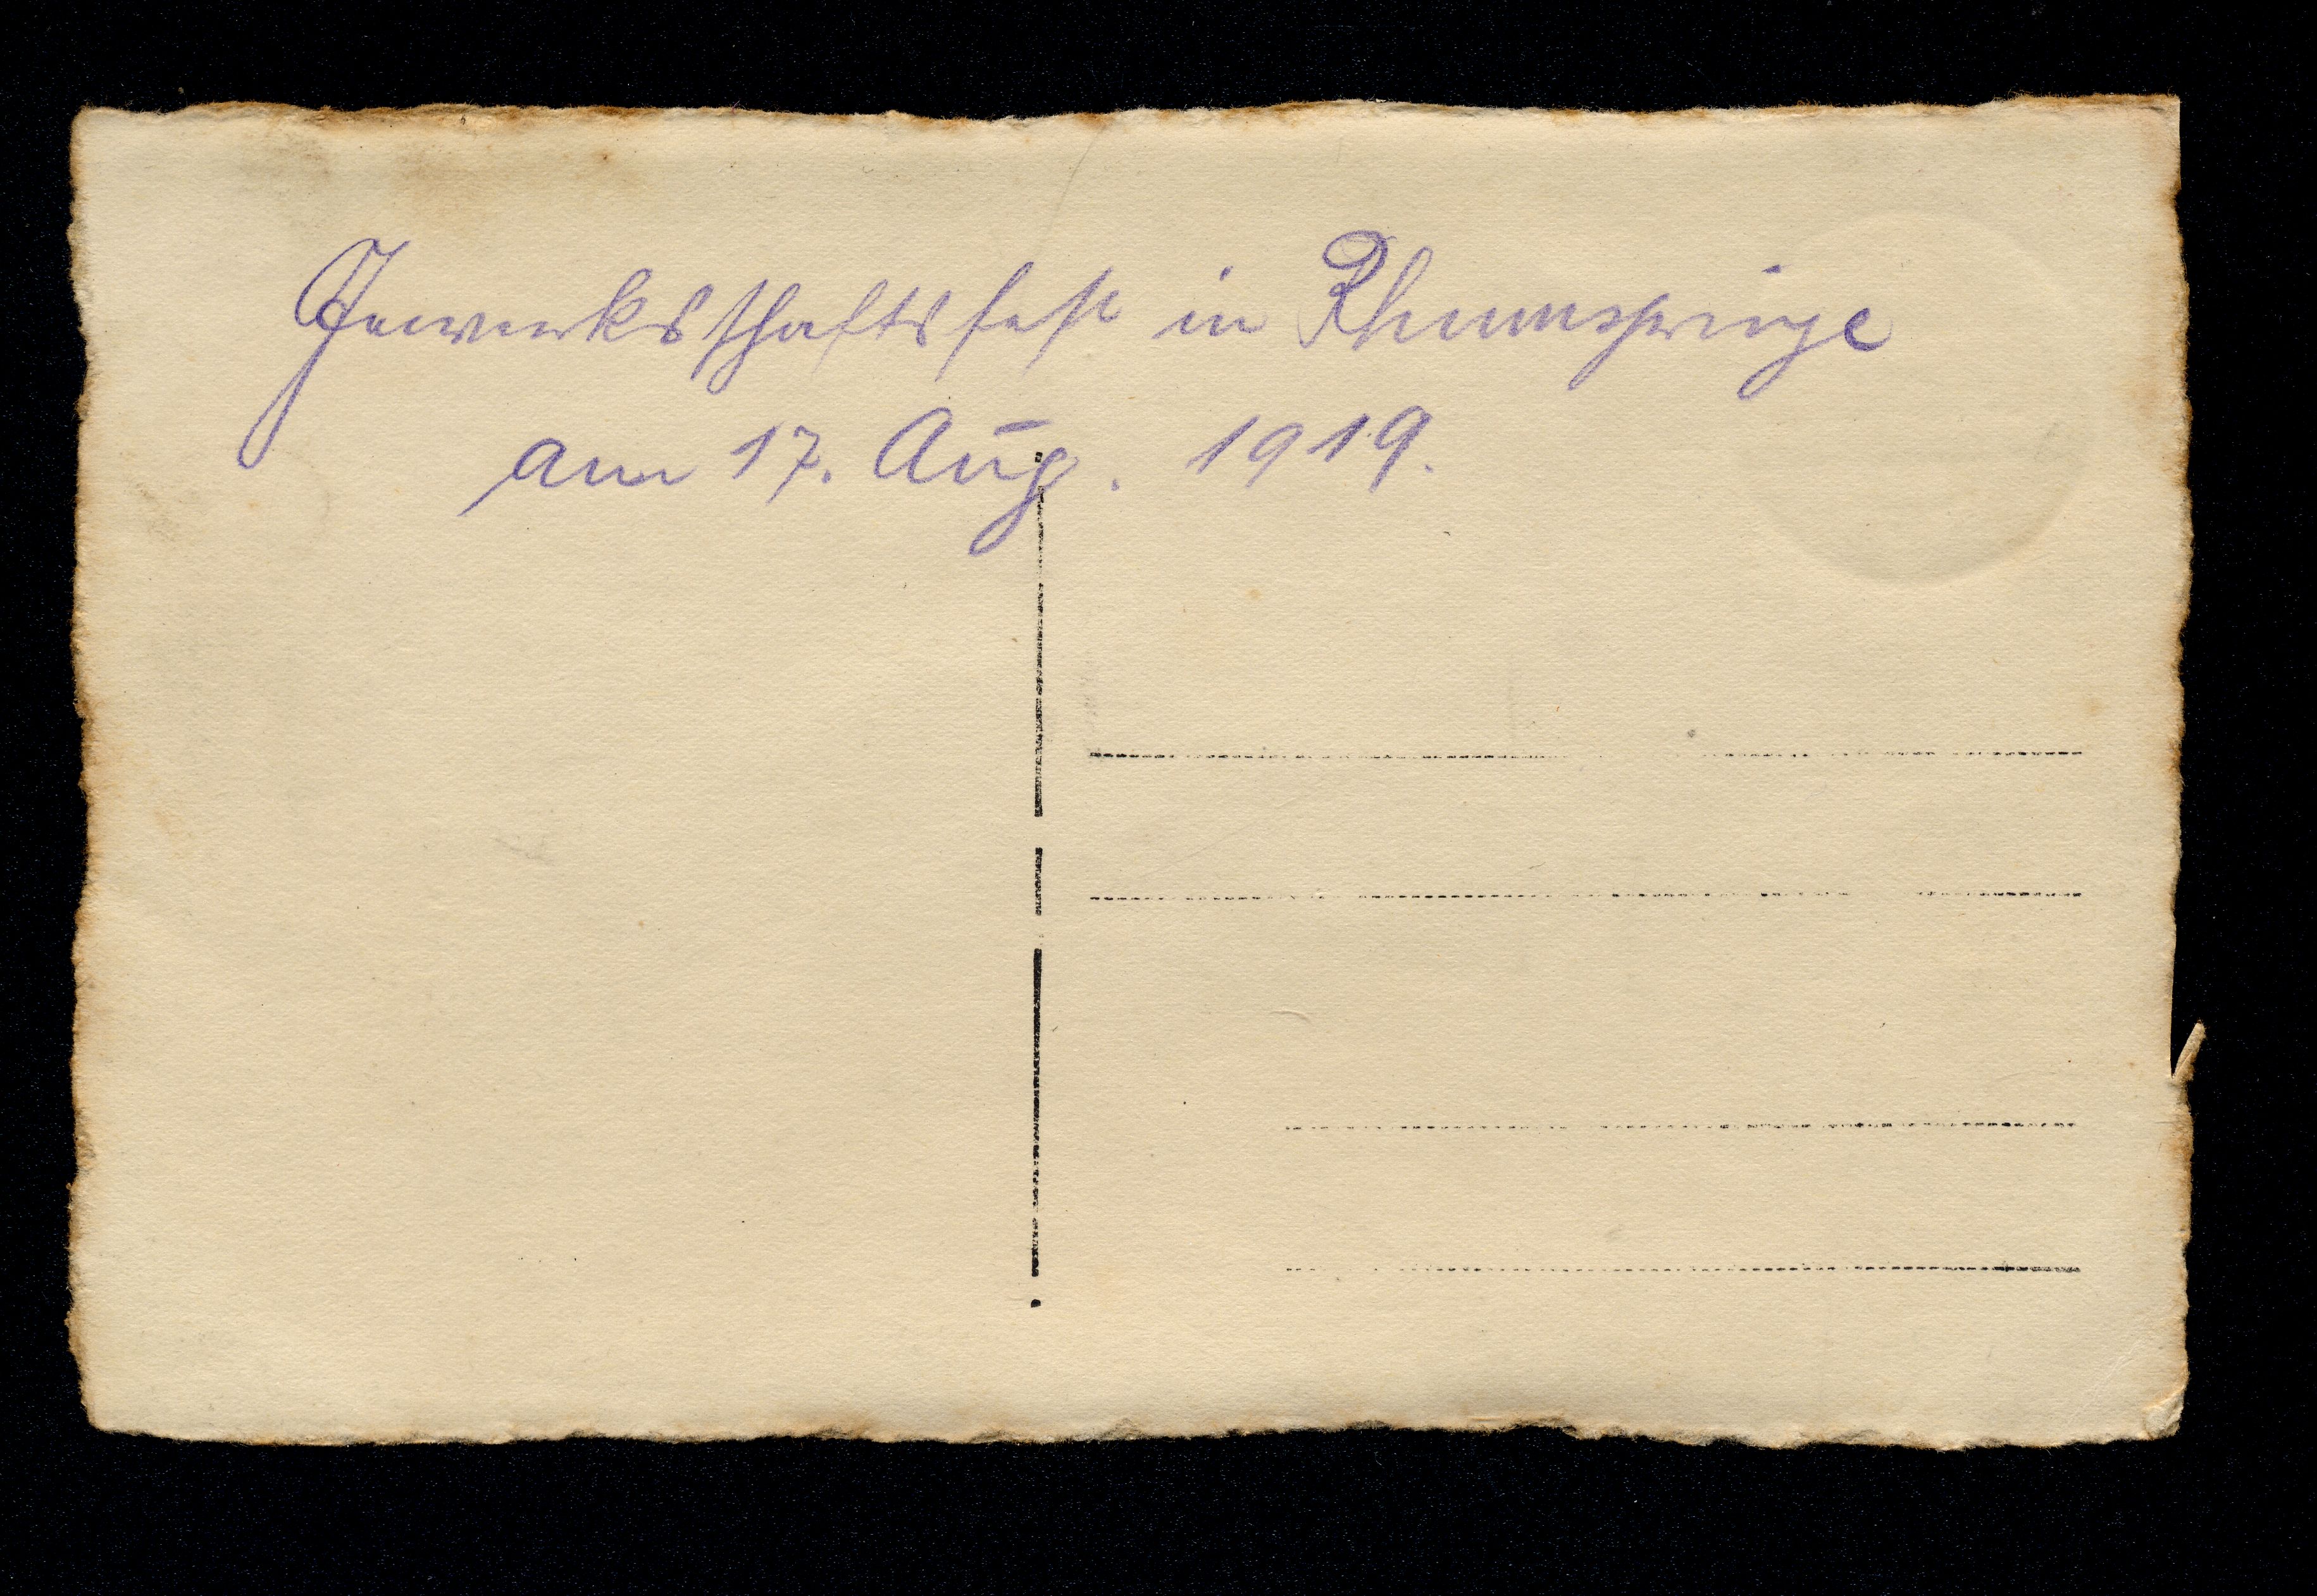 Gewerkschaftsfest in Rhumspringe
am 17. Aug. 1919.